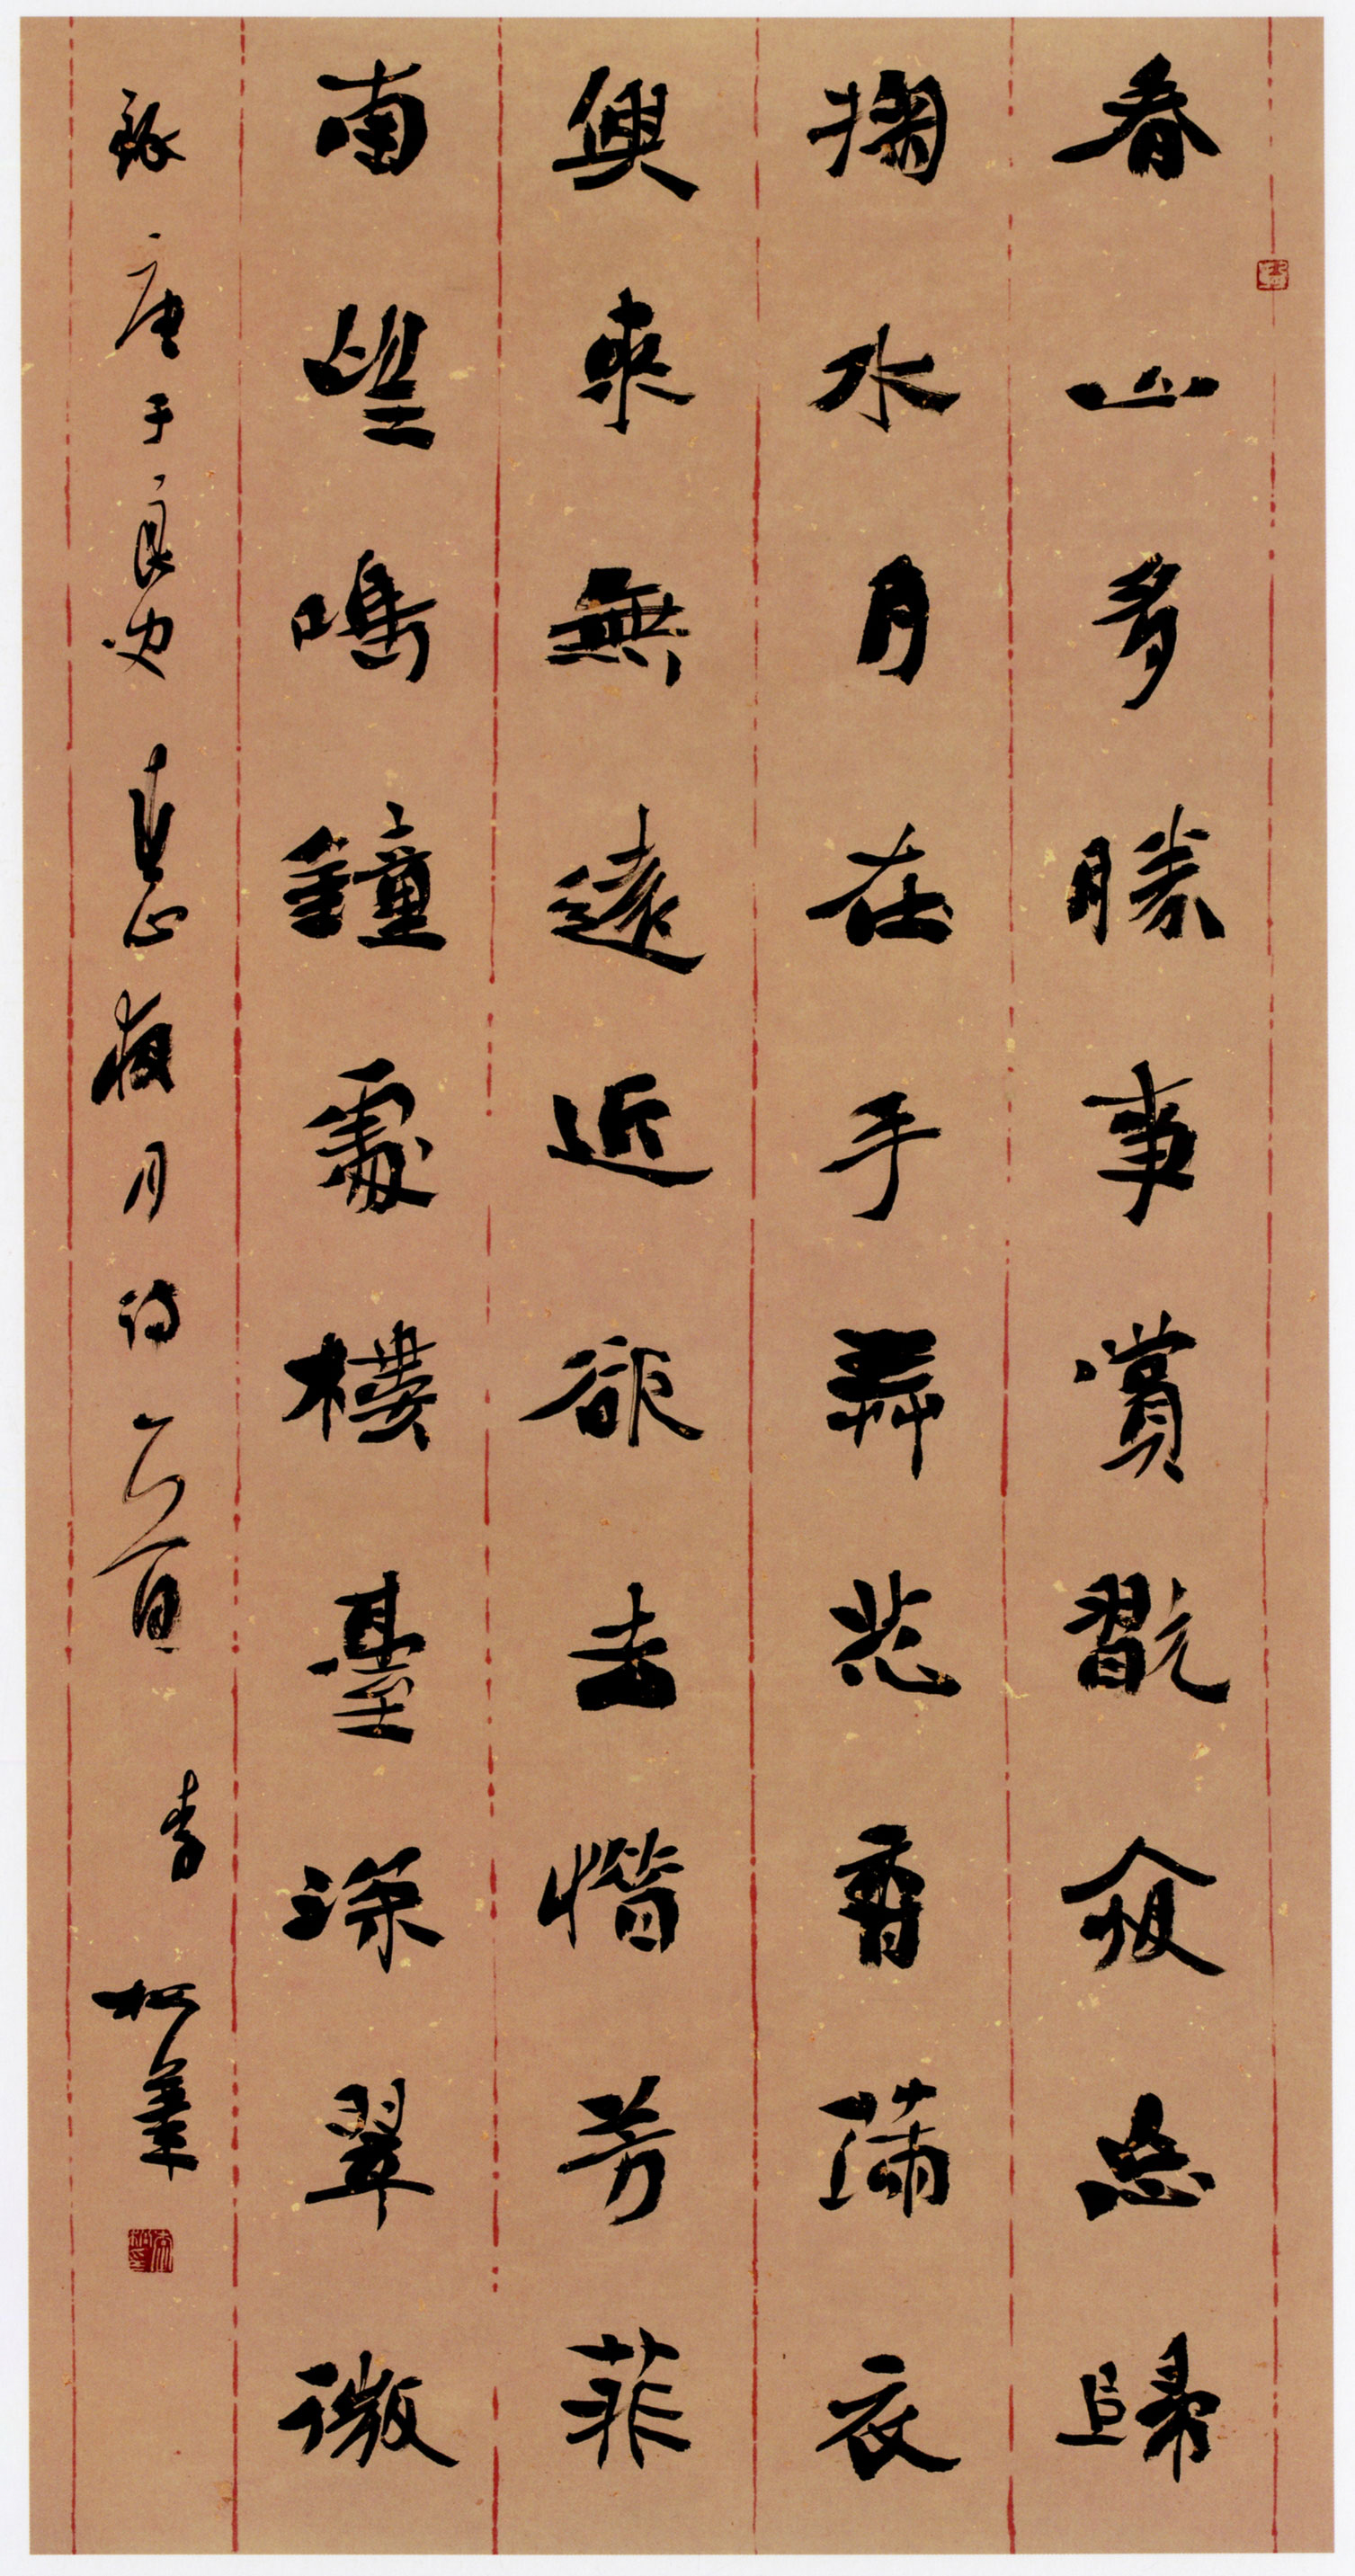 春山多勝事賞翫夜忘歸
掬水月在手弄花香滿衣
興來無遠近欲去惜芳菲
南望鳴鐘處樓臺深翠微
錄唐于良史春山夜月詩一首 李松筆